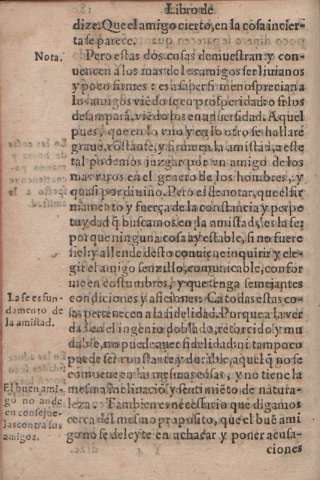 Libro de
dize. Que el amigo cierto, en la cosa incier-
ta se parece.
Nota.
Pero estas dos cosas demuestran y con-
uencen a los mas de los amigos ser liuianos
y poco firmes: es a saber si menosprecian a
los amigos viēdose en prosperidad: o si los
desampara, viēdolos en aduersidad. Aquel
pues, que en lo vno y en lo otro se hallare
graue, cōstante, y firme en la amistad, a este
tal podemos juzgar por vn amigo de los
mas raros en el genero de los hombres, y
quasi por diuino. Pero es de notar, que el fir
mamento y fuerça de la constancia y perpe
tuydad q̄ buscamos en la amistad, es la fe:
porque ninguna cosa ay estable, si no fuere
fiel: y allende desto conuiene inquirir y ele-
gir el amigo senzillo, comunicable, confor
me en costumbres, y que tenga semejantes
condiciones y aficiones. Ca todas estas co-
sas pertenecen a la fidelidad. Porque a la ver
dad en el ingenio doblado, retorcido y mu
dable, no puede auer fidelidad: ni tampoco
puede ser constante y durable, aquel q̄ no se
comueue en las mesmas cosas, y no tiene la
mesma inclinaciō y sentimiēto de natura-
leza. Tambien es necessario que digamos
cerca del mesmo proposito, que el buē ami
go no se deleyte en achacar y poner acusa-
ciones
La fe es fun-
damento de
la amistad.
El buen ami-
go no ande
en consejue-
las contra sus
amigos.